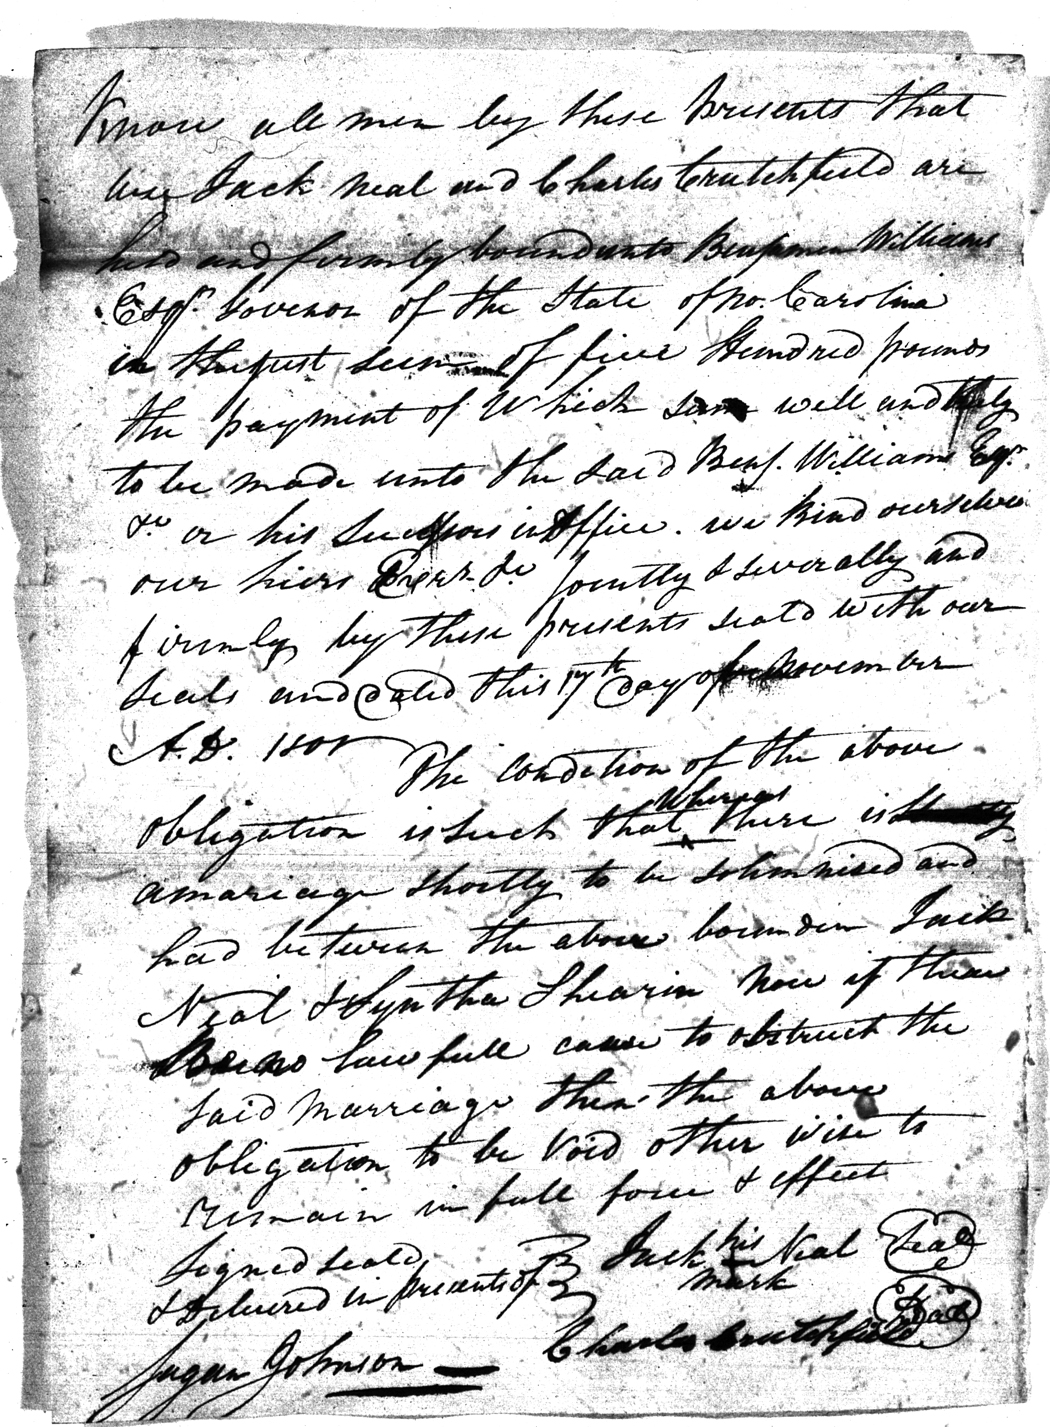 Know all men by these Presents that
we Jack Neal and Charles Crutchfield are
held and firmly bound unto Benjamin Williams
Esqr. Govenor of the State of No. Carolina
in the just sum of five Hundred pounds
the payment of Which sum well and truly
to be made unto the said Benj. Williams Esqr.
&c or his Successors in Office. we Bind ourselves
our hiers Exers. &c Jointly & severally and
firmly by these presents seald with our
seals and dated this 17th day of November
A.D. 1801
The condition of the above
obligation is such that Whereas there is
a mariage shortly to be solemnised and
had between the above bounden Jack
Neal & Syntha Shearin Now if there
Be no lawfull cause to obstruct the
said Marriage then the above
obligation to be Void other wise to
remain in full force & effect
Signed seald
& Delivered in presents of
Jack his Neal Seal
mark
Charles Crutchfield Seal
Johnson